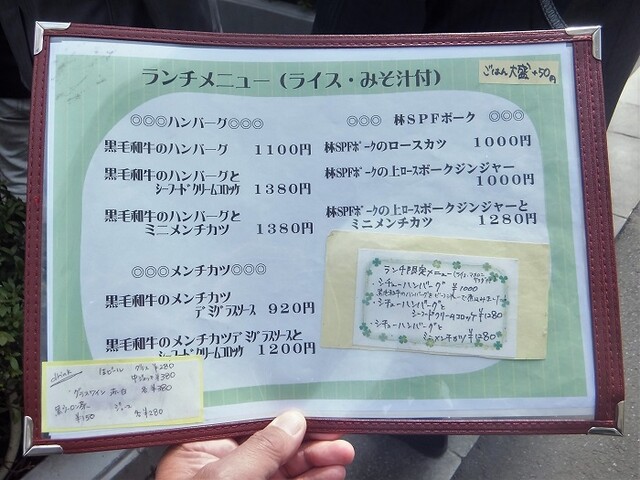 ランチメニュー（ライス・みそ汁付）
ごはん大盛+50円
◎◎◎ハンバーグ◎◎◎
黒毛和牛のハンバーグ 1100円
黒毛和牛のハンバーグと
シーフードクリームコロッケ 1380円
黒毛和牛のハンバーグと
ミニメンチカツ 1380円
◎◎◎メンチカツ◎◎◎
黒毛和牛のメンチカツ
デミグラスソース 920円
黒毛和牛のメンチカツデミグラスソースと
シーフードクリームコロッケ 1200円
◎◎◎ 林SPFポーク ◎◎◎
林SPFポークのロースカツ 1000円
林SPFポークの上ロースポークジンジャー
1000円
林SPFポークの上ロースポークジンジャーと
ミニメンチカツ 1280円
ランチ限定メニュー
・シチューハンバーグ ¥1000
・シチューハンバーグと
シーフードクリームコロッケ ¥1280
・シチューハンバーグと
ミニメンチカツ ¥1280
drink
生ビール グラス ¥280
中ジョッキ ¥380
グラスワイン 赤・白 各¥380
黒ウーロン茶
¥150
ジュース 各¥280